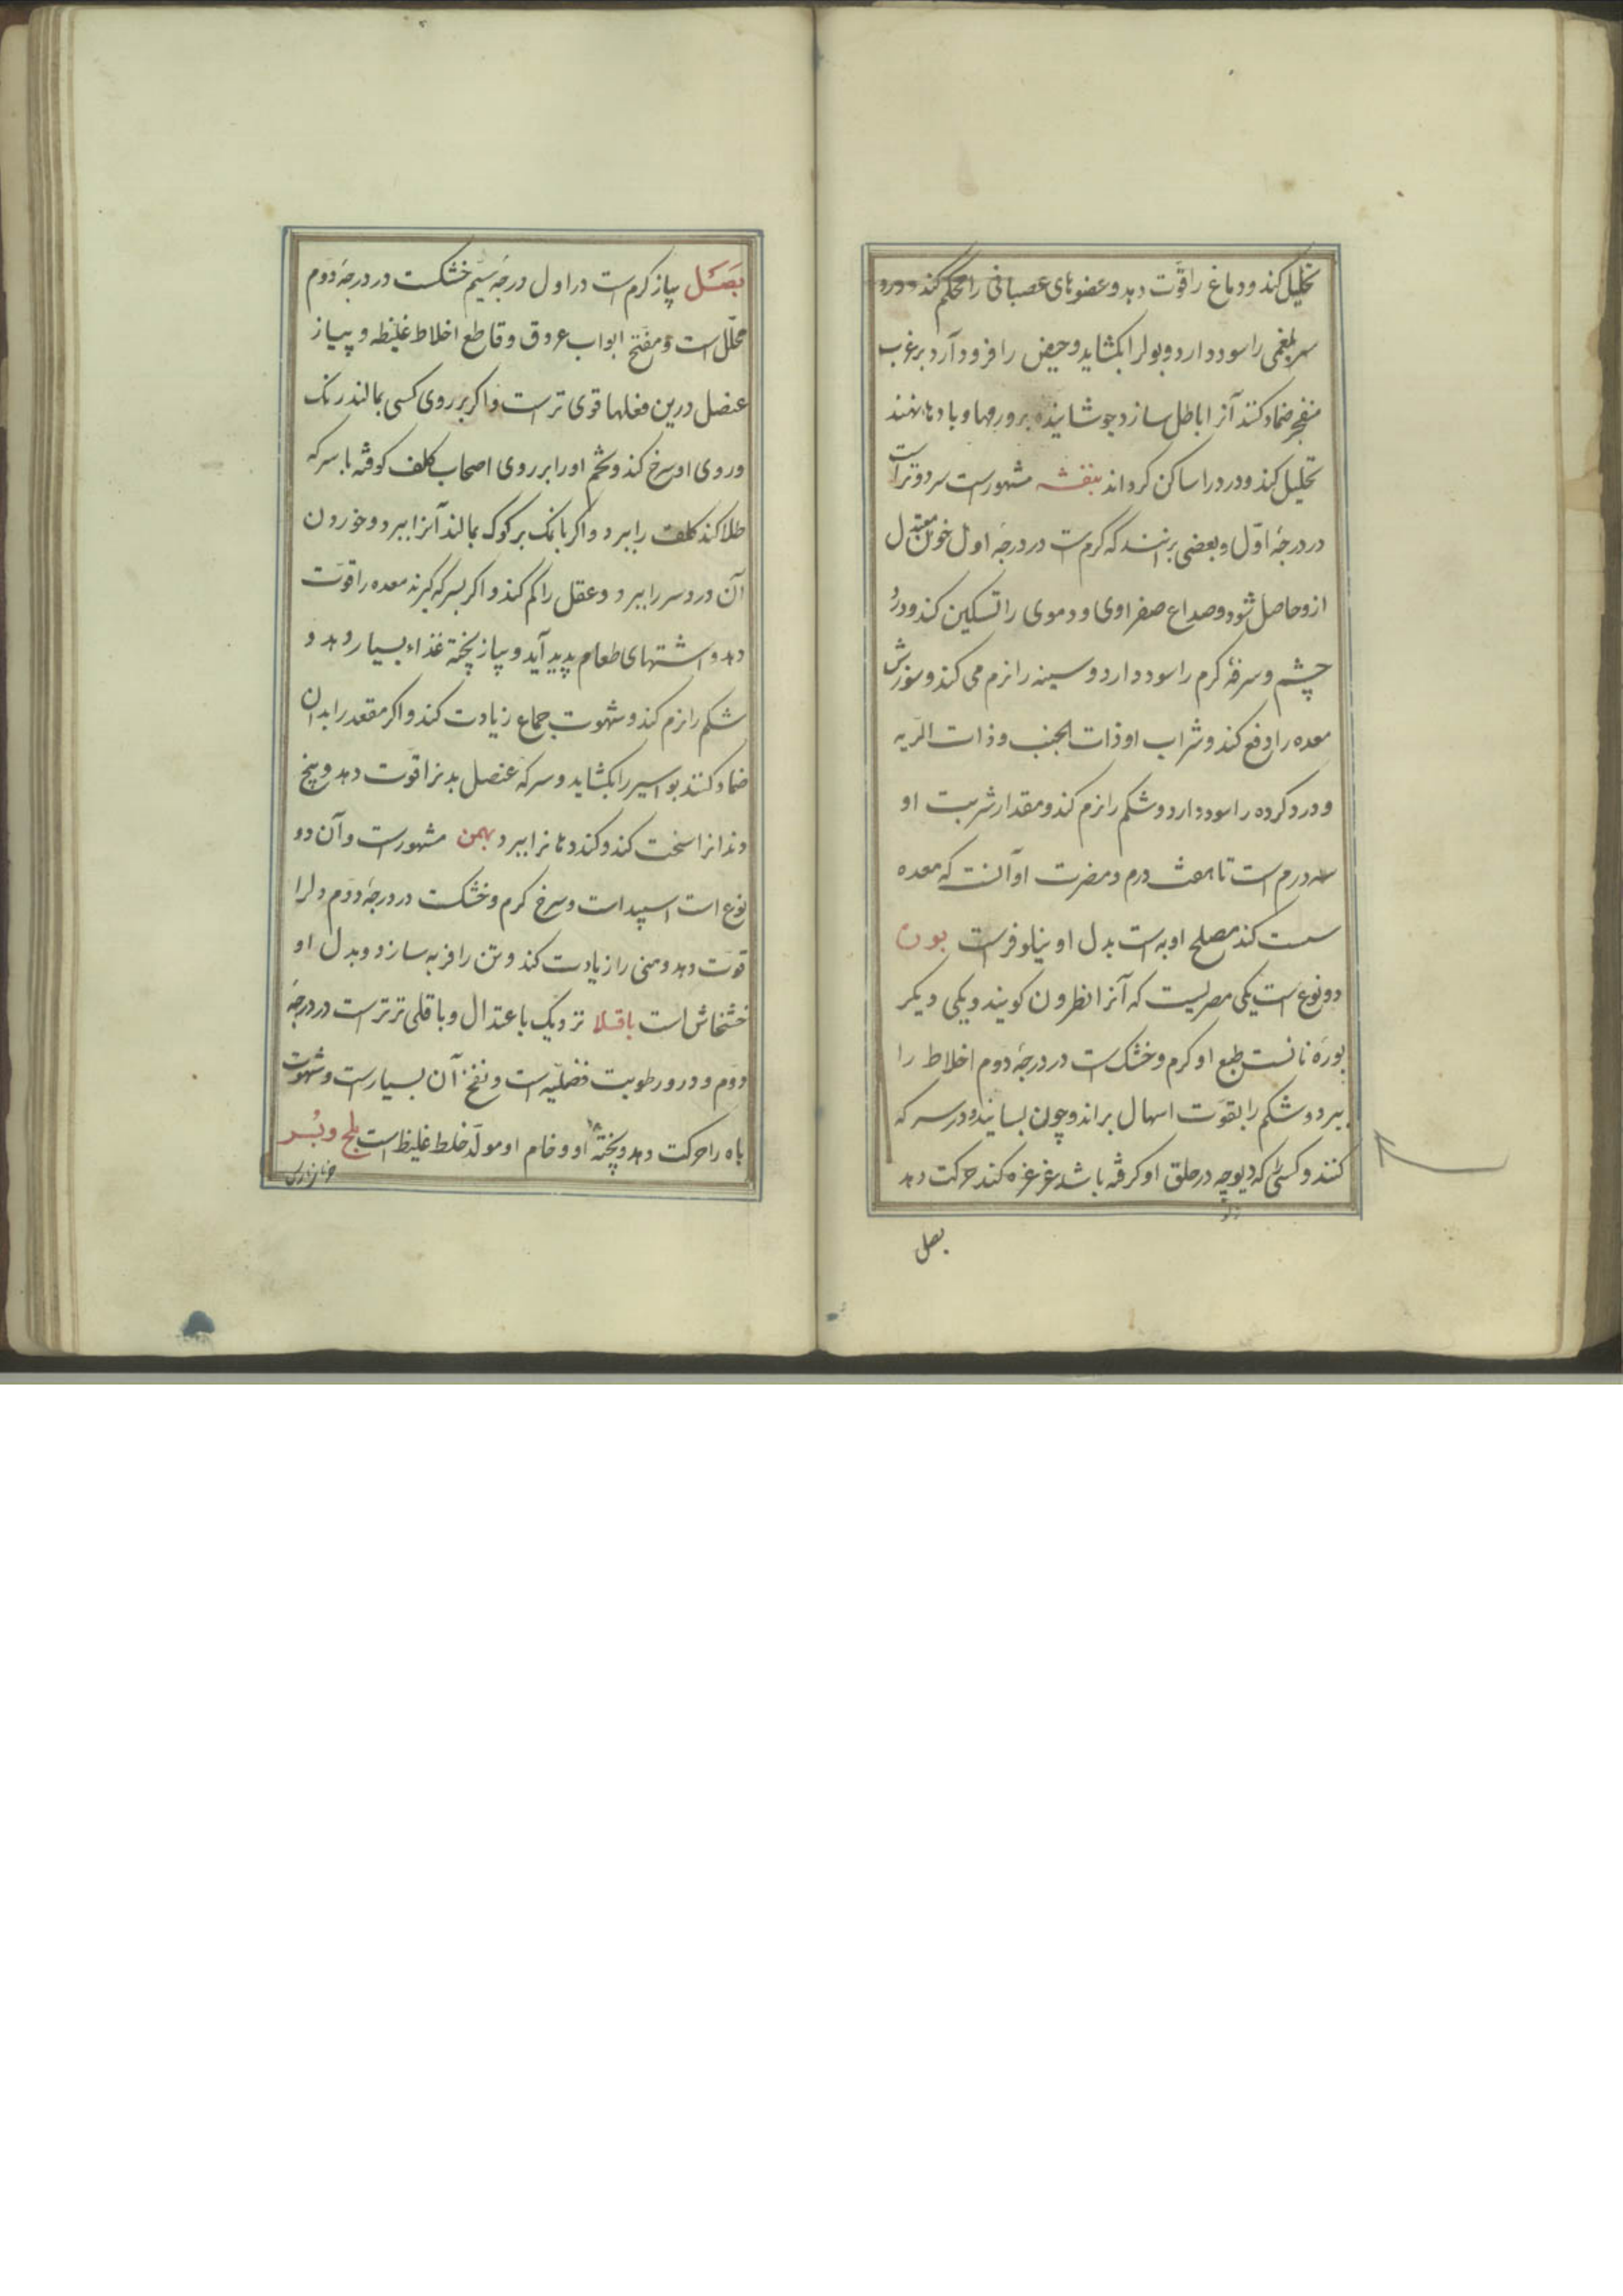 تحلیل کند و دماغ را قوّت دهد و عضوهای عصبانی را محکم کند و درد
سر بلغمی را سود دارد و بول را بکشاید و حیض را فرود آرد بر غرب
منفجر ضماد کنند آنرا باطل سازد جوشانیده بر ورمها و بادها نهند
تحلیل کند و درد را ساکن کرداند بنفشه مشهورست سرد و تر است
در درجهٔ اوّل و بعضی برانند که کرم ست در درجهٔ اول خون معتدل
ازو حاصل شود و صداع صفراوی و دموی را تسکین کند و درد
چشم و سرفهٔ کرم را سود دارد و سینه را نرم می کند و سوزش
معده را دفع کند و شراب او ذات الجنب و ذات الریه
و درد کرده را سود دارد و شکم را نرم کند و مقدار شربت او
سه درم است تا هفت درم و مضرت او آنست که معده
سست کند مصلح او به است بدل او نیلوفرست بوره
دو نوع است یکی مصریست که آنرا نطرون کویند و یکی دیکر
بورهٔ نانست طبع او کرم و خشک ست در درجهٔ دوم اخلاط را
ببرد و شکم را بقوّت اسهال براند و چون بسایند و در سرکه
کنند و کسی را که دیوچه در حلق او کرفته باشد غرغره کند حرکت دهد
بصل
بَصَل پیاز کرم است در اول درجهٔ سیّم خشکست در درجهٔ دوّم
محلّل است و مفتح ابواب عروق و قاطع اخلاط غلیظه و پیاز
عنصل درین فعلها قوی تر است و اکر بر روی کسی بمالند رنک
و روی او سرخ کند و تخم او را بر روی اصحاب کلف کوفته با سرکه
طلا کند کلف را ببرد و اکر با نمک بر کوک بمالند آنرا ببرد و خوردن
آن درد سر را ببرد و عقل را کم کند و اکر بسرکه کیرند معده را قوّت
دهد و اشتهای طعام پدید آید و پیاز پخته غذاء بسیار دهد و
شکم را نرم کند و شهوت جماع زیادت کند و اکر مقعد را بدان
ضماد کنند بواسیر را بکشاید و سرکه عنصل بدنرا قوّت دهد و بیخ
دندانرا سخت کند و کند دهانرا ببرد بهمن مشهورست و آن دو
نوع است اسپید است و سرخ کرم و خشکست در درجهٔ دوّم دلرا
قوّت دهد و منی را زیادت کند و تن را فربه سازد و بدل او
خشخاش است باقلا نزدیک باعتدال و باقلی تر ترست در درجهٔ
دوم و درو رطوبت فضلیّه است و نفخ آن بسیارست و شهوت
باه را حرکت دهد و پختهٔ او و خام او مولّد خلط غلیظ است بلح و بُسر